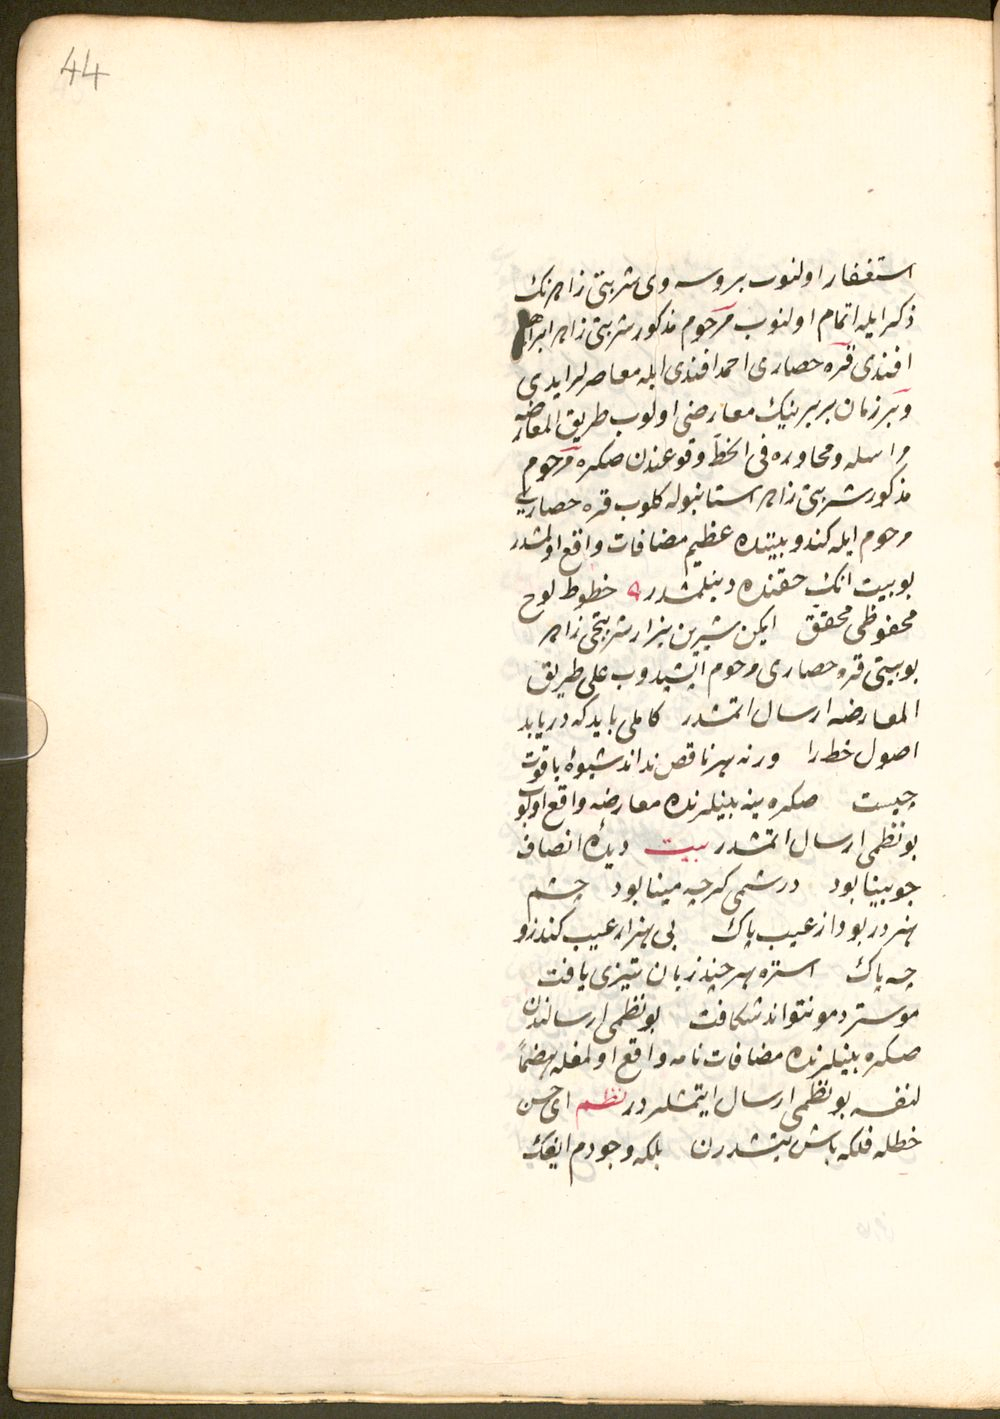 44
استغفار اولنوب بروسه وى شربتى زاده نك
ذكر ايله اتمام اولنوب مرحوم مذكور شربتى زاده ابراهيم
افندى قره حصارى احمد افندى ايله معاصرلر ايدى
وبر زمان بربرينك معارضى اولوب طريق المعارضه
مراسله ومحاوره فى الخط وقوعندن صكره مرحوم
مذكور شربتى زاده استانبوله كلوب قره حصارى
مرحوم ايله كندو بيننده عظيم مضافات واقع اولمشدر
بو بيت انك حقنده دينلمشدر خطوط لوح
محفوظى محقق ايكن شيرين يزار شربتجى زاده
بو بيتى قره حصارى مرحوم ايشيدوب على طريق
المعارضه ارسال اتمشدر كاملى بايد كه دريابد
اصول خط را ورنه هر ناقص نداند شيوۀ ياقوت
چيست صكره ينه بينلرنده معارضه واقع اولوب
بو نظمى ارسال اتمشدر بيت ديدۀ انصاف
چو بينا بود در شمى كرچه مينا بود چشم
هنرور بود از عيب پاك بى هنر ار عيب كند زو
چه باك استره هر چند زبان تيزى يافت
موسترد مو نتواند شكافت بو نظمى ارسالندن
صكره بينلرنده مضافات نامه واقع اولمغله هضماً
لنفسه بو نظمى ارسال ايتمشلردر نظم اى حسن
خطله فلكه باش يتشدرن بلكه وجودم ايفك